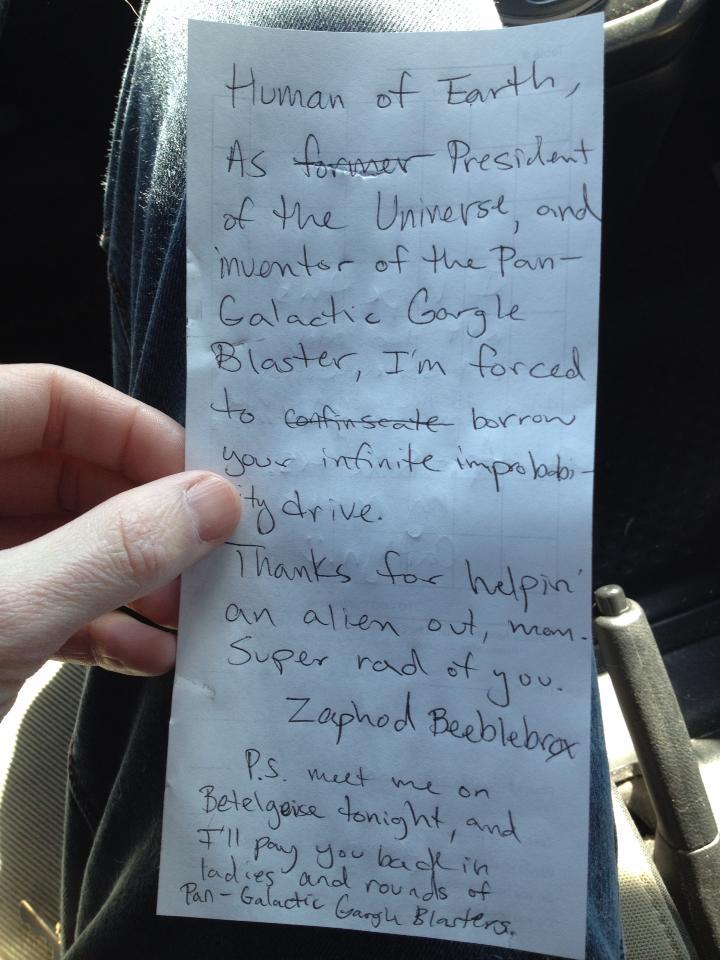 Human of Earth,
As former President
of the Universe, and
inventor of the Pan-
Galactic Gargle
Blaster, I'm forced
to confinscate borrow
your infinite improbabi-
ity drive.
Thanks for helpin'
an alien out, man.
Super rad of you.
Zaphod Beeblebrox
P.S. meet me on
Betelgeise tonight, and
I'll pay you back in
ladies and rounds of
Pan-Galactic Gargle Blasters.